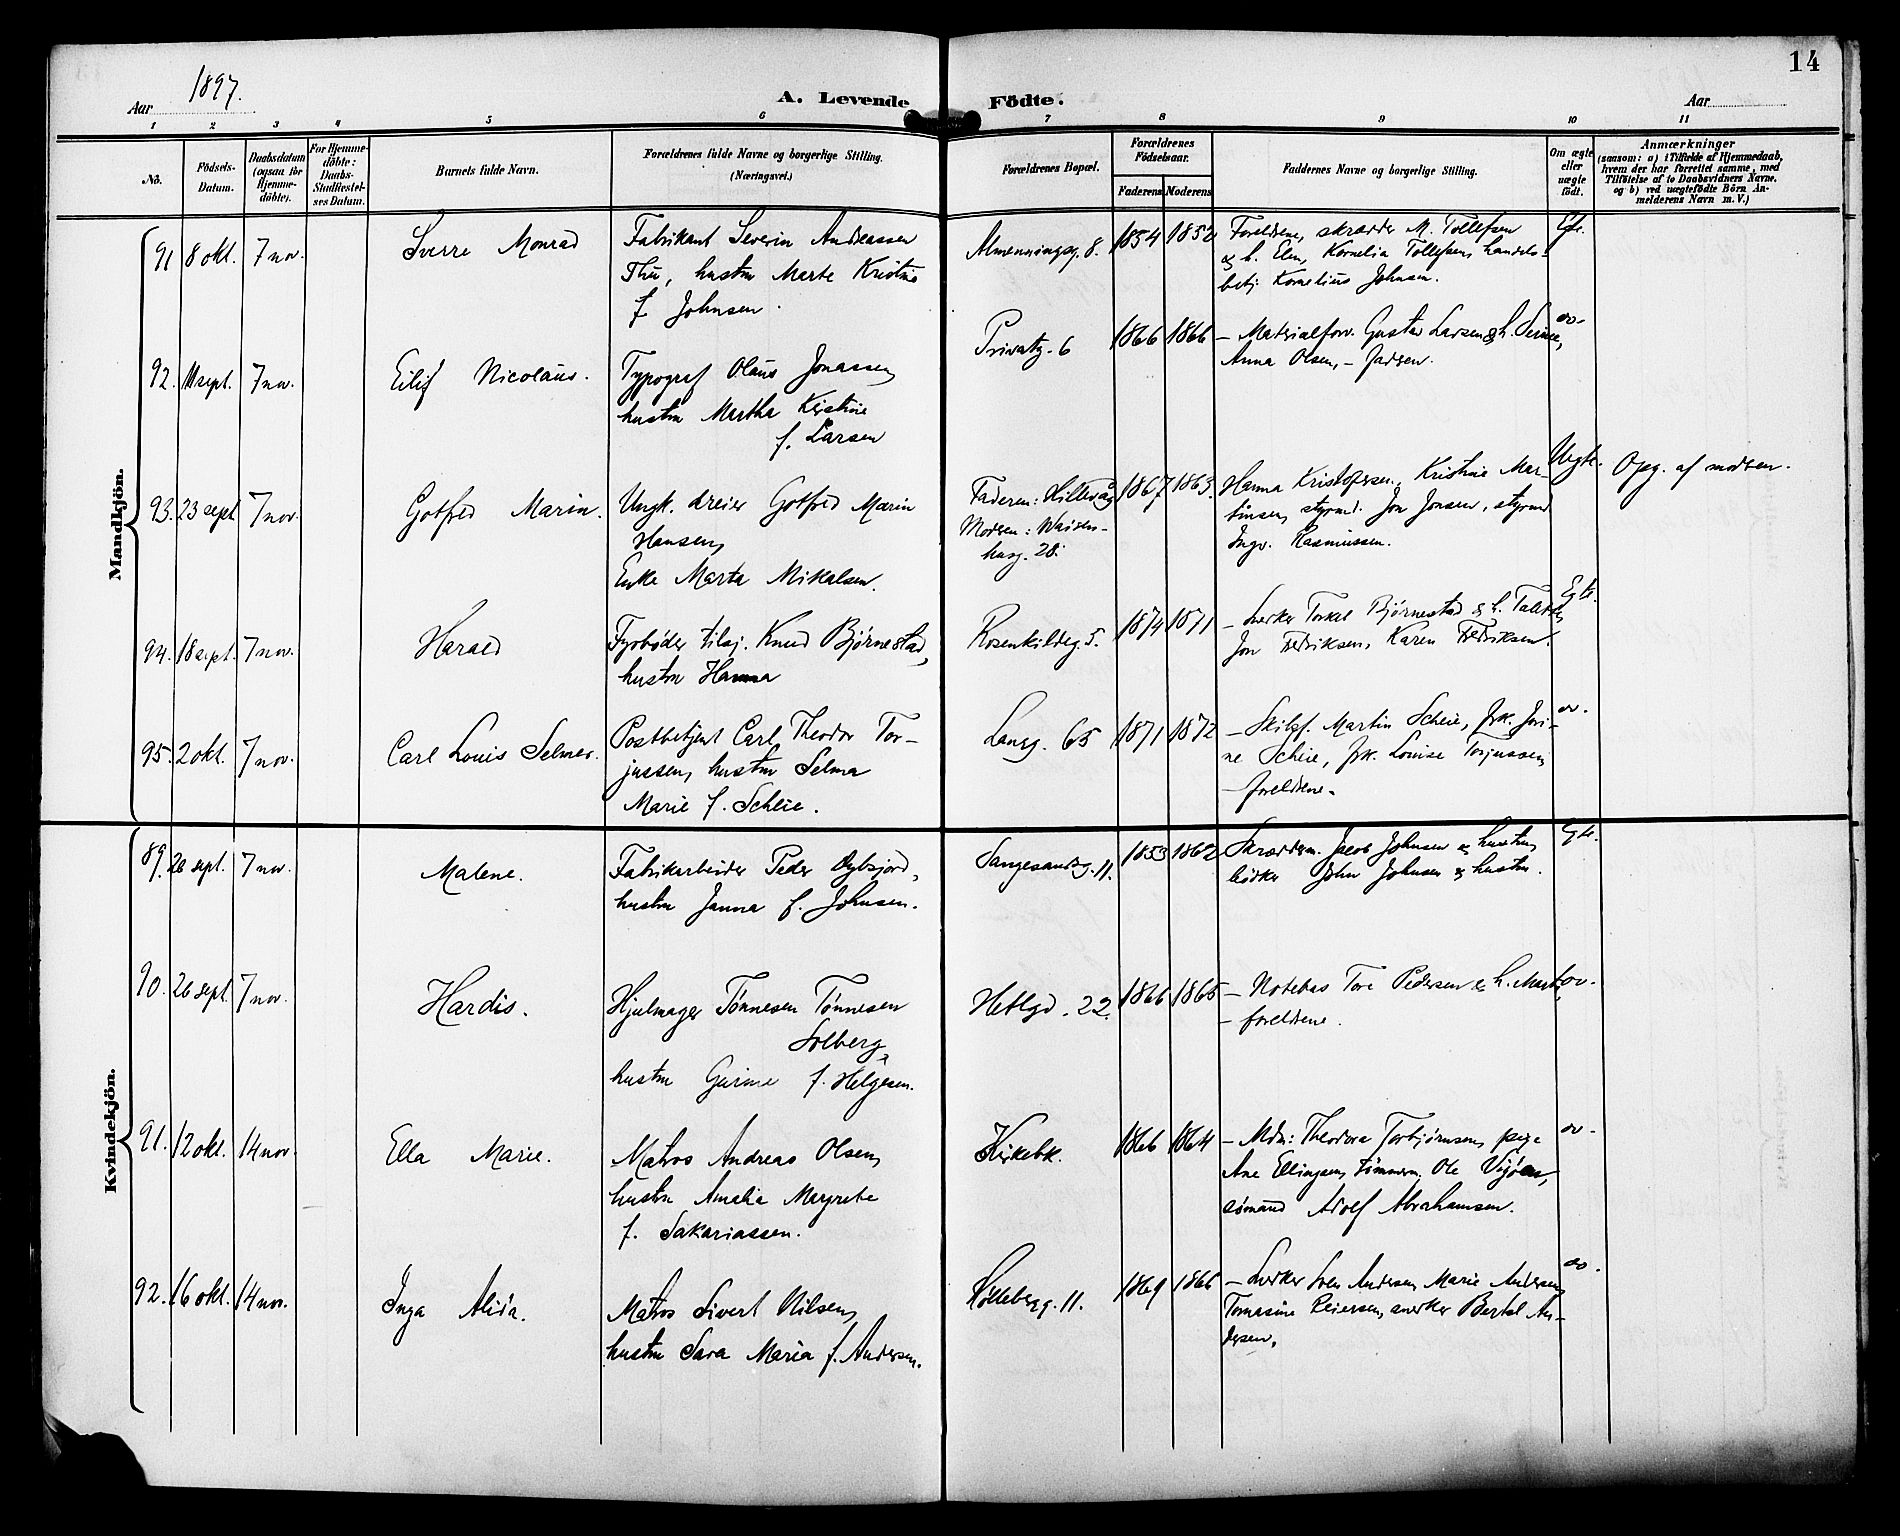 14
Aar 1897.
A. Levende Födte.
Aar
1 2 3 4 5 6 7 8 9 10 11
No.
Födsels-Datum.
Daabsdatum (ogsaa for Hjemme-döbte).
For Hjemme-döbte: Daabs-Stadfæstel-ses Datum.
Barnets fulde Navn.
Forældrenes fulde Navne og borgerlige Stilling.
(Næringsvei.)
Forældrenes Bopæl.
Forældrenes Födselsaar.
Faderens Moderens
Faddernes Navne og borgerlige Stilling.
Om ægte eller uægte født.
Anmærkninger
(saasom: a) i Tilfælde af Hjemmedaab,
hvem der har forrettet samme, med
Tilföielse af to Daabsvidners Navne.
og b) ved uægtefödte Börn An-
melderens Navn m. V.)
Mandkjön.
91 8 okt. 7 nov. Sverre Monrad
Fabrikant Severin Andreassen
Thu, hustru Marte Kristine
f. Johnsen.
Almenningsg. 8. 1854 1852
Foreldrene, skrædder M. Tollefsen
& h. Elen, Kornelia Tollefsen, handels-
betj. Kornelius Johnsen.
Egte.
92. 11 sept. 7 nov. Eilif Nicolaus.
Typograf Olaus Jonassen,
hustru Martha Kristine
f. Larsen
Privatg. 6 1866 1866
– Materialforv. Gustav Larsen & h. Serine,
Anna Olsen, – faderen.
do-
93. 23 sept 7 nov. Gotfred Marin.
Ungk. dreier Gotfred Marin
Hansen,
Enke Marta Mikalsen.
Faderen: Hillevåg
Moderen: Waisen-
husg. 28.
1867 1863.
Hanna Kristofersen, Kristine Mar-
tinsen, styrmd. Jon Jonsen, styrmd
Ingv. Rasmussen.
Uegte. Opg. af moderen.
94. 18 sept. 7 nov. Harald
Fyrbøder tilsj. Knud Bjørnestad,
hustru Hanna
Rosenkildeg. 5. 1874 1871
– Snerker Torkel Bjørnestad & h.
Jon Fredriksen, Karen Fredriksen.
Egte.
95. 2 okt. 7 nov. Carl Louis Selmer.
Postbetjent Carl Theodor Tor-
jussen, hustru Selma
Marie f. Scheie.
Langg. 65 1871 1872
– Skibsf. Martin Scheie, frk. Jori-
ne Scheie, frk. Louise Torjussen,
– foreldrene.
do.
Kvindekjön.
89. 26 sept. 7 nov. Malene.
Fabrikarbeider Peder Dybsjord,
hustru Janna f. Johnsen.
Sangesandsg. 11. 1853 1862
Skrædderm. Jacob Johnsen & hustru,
bødker John Johnsen & hustru.
Egte.
90. 26 sept. 7 nov. Hardis.
Hjulmager Tønnesen Tønnesen
Solberg,
hustru Gurine f. Helgesen.
Hetlgd. 22. 1866 1865
– Notebas Tore Pedersen & h. Marta,
– foreldrene.
do-
91. 12 okt. 14 nov. Ella Marie.
Matros Andreas Olsen,
hustru Amalia Margrete
f. Sakariassen.
Kirkebk. 1866 1864
– Mdm: Theodora Torbjørnsen, pige
Ane Ellingsen, tømmerm. Ole
sømand Adolf Abrahamsen.
do-
92. 16 okt. 14 nov. Inga Alida.
Matros Sivert Nilsen,
hustru Sara Maria f. Andersen.
Hølleberg g. 11. 1869 1866
– Snerker Sven Andersen, Marie Andersen,
Tomasine Reiersen, snerker Bertel An-
dersen.
do-